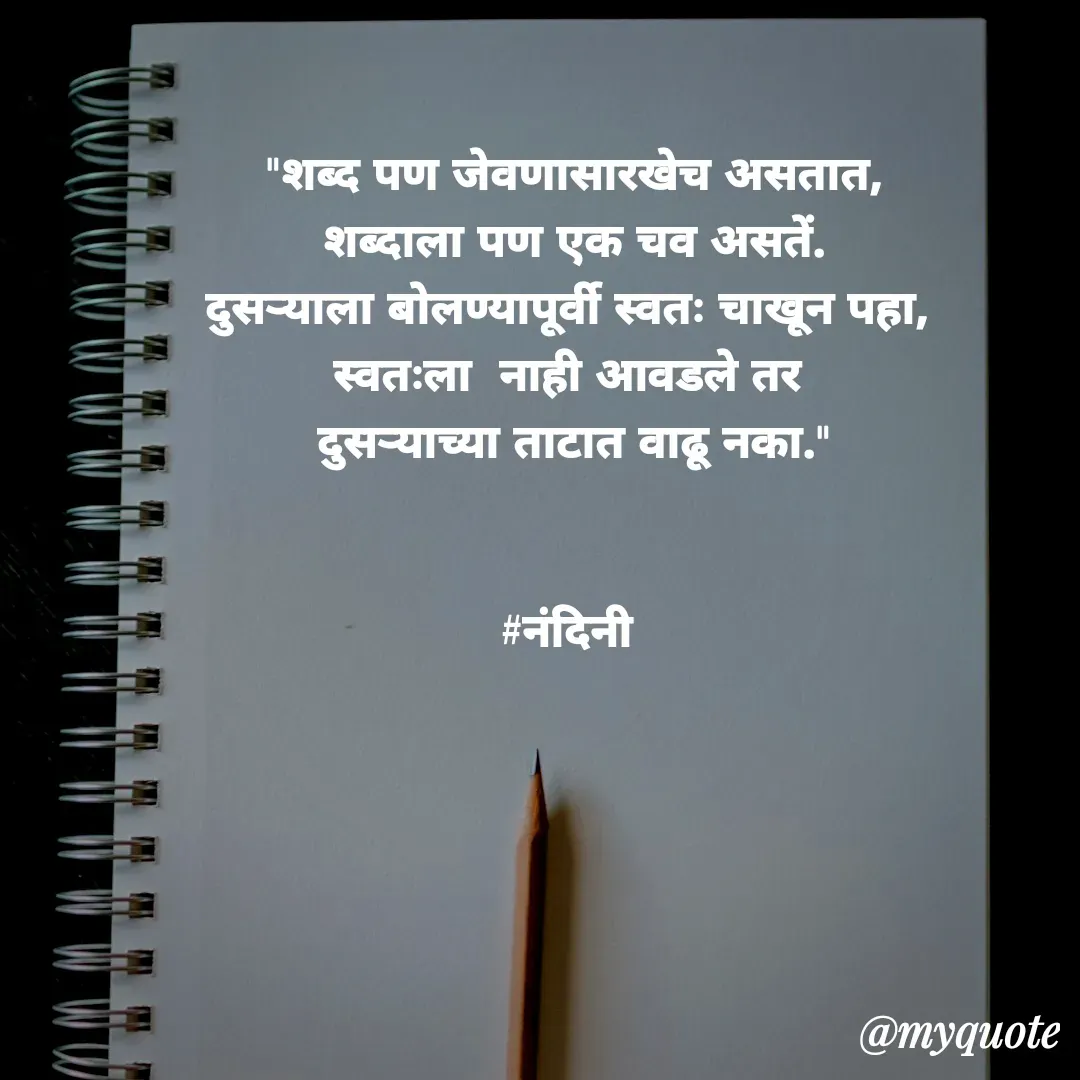 "शब्द पण जेवणासारखेच असतात,
शब्दाला पण एक चव असतें.
दुसऱ्याला बोलण्यापूर्वी स्वतः चाखून पहा,
स्वतःला  नाही आवडले तर
दुसऱ्याच्या ताटात वाढू नका."
#नंदिनी
@myquote